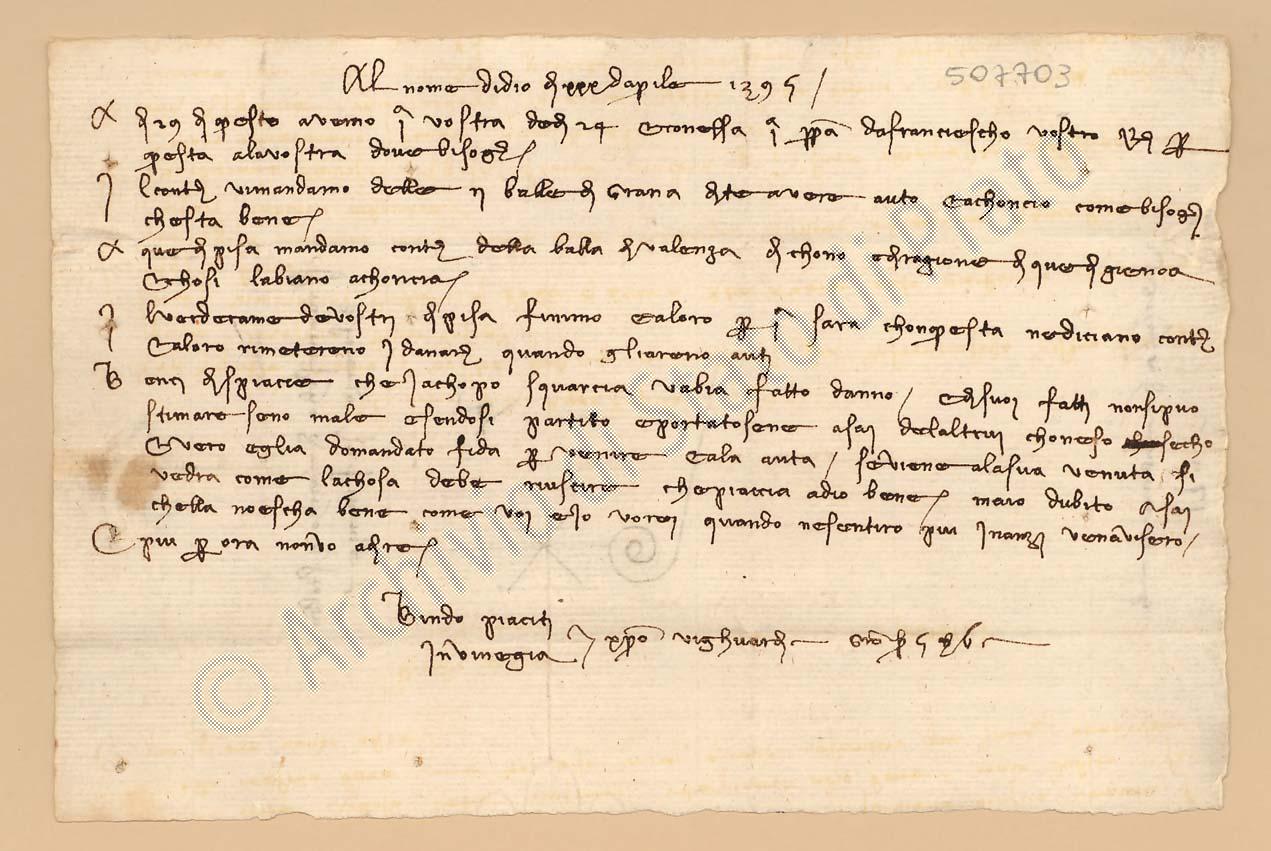 507703
Al nome di dio dì xxx d'aprile 1395 /
A dì 29 di questo avemo 1ª vostra de dì 24 e con essa 1ª da Franciescho vostro
questa a la vostra dove bisogna
I l conto vi mandamo delle ii balle di Grana dite avere auto e achoncio come bisogna
che sta bene
A que di Pisa mandamo conto della balla di Valenza dichono è di ragione di que di Gienoa
e chosì l'abiano achoncia
I l verderame de vostri di Pisa finimo e a loro per sarà chon questa ne diciano conto
e a loro rimetereno i danari quando gli areno auti
B enci dispiacie che Jachopo Squarcia v'abia fatto danno / e di suoi fatti non si può
stimare se no male esendosi partito e portatosene asai de l'altrui chon eso secho
è vero egli à domandato fida per venire e à la auta / se viene a la sua venuta si
vedrà come la chosa debe riuscire che piaccia a dio bene ma io dubito asai
ch'ella no escha bene come voi e io vorei quando ne sentirò più inanzi ve n'aviserò /
E più per ora non vo a dire
Bindo Piaciti
in Vinegia
© Archivio di Stato di Prato